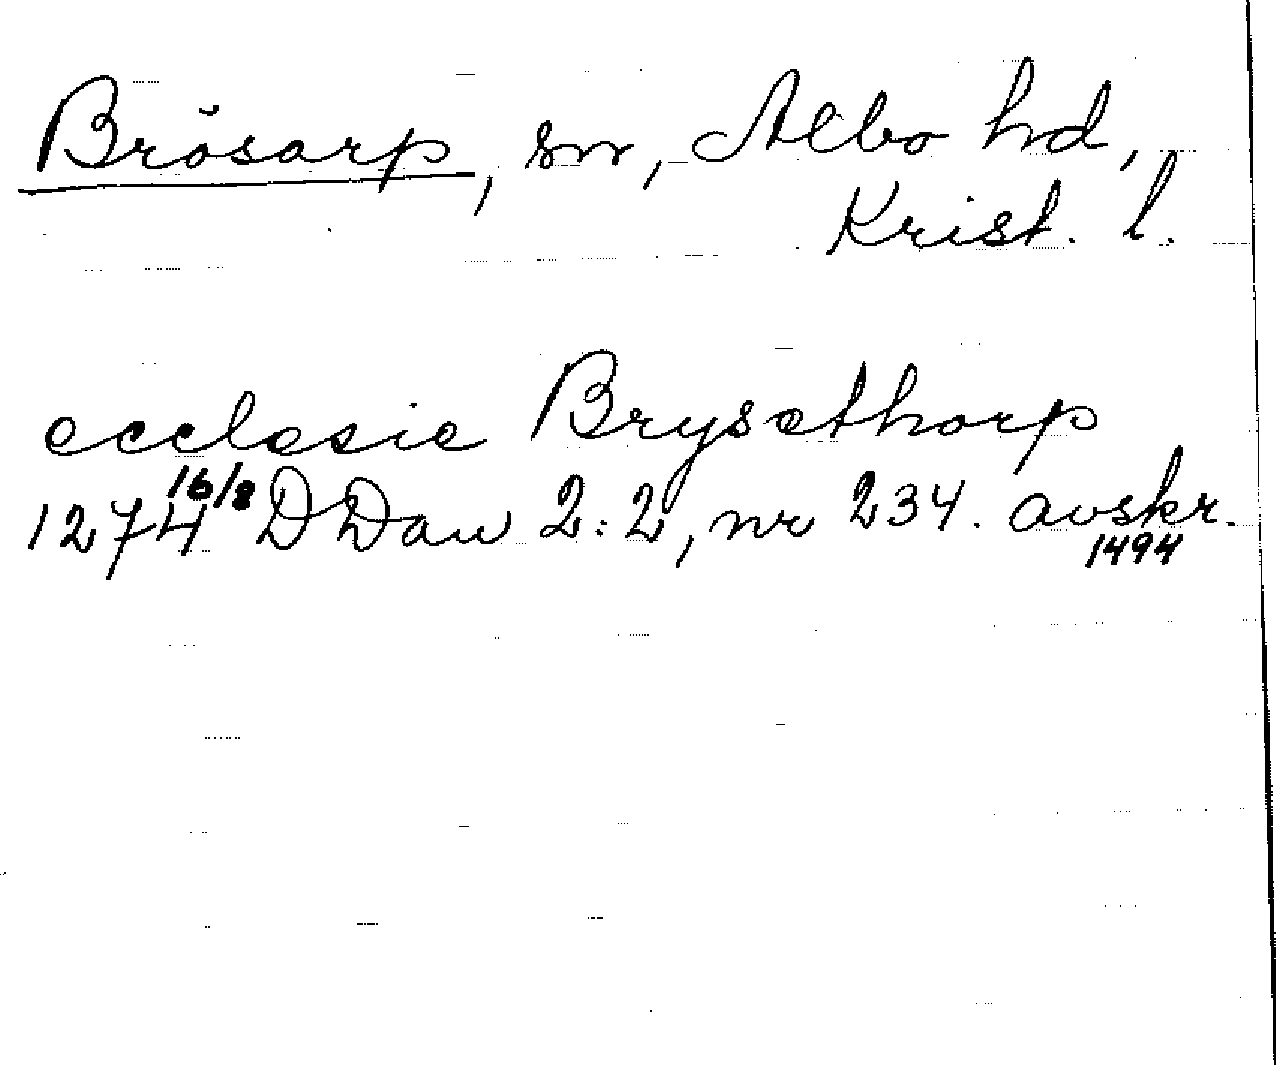 Brösarp, sn, Albo hd,
Krist. l.
ecclesie Brysethorp
1274 16/8 DDan 2:2, nr 234. avskr.
1494